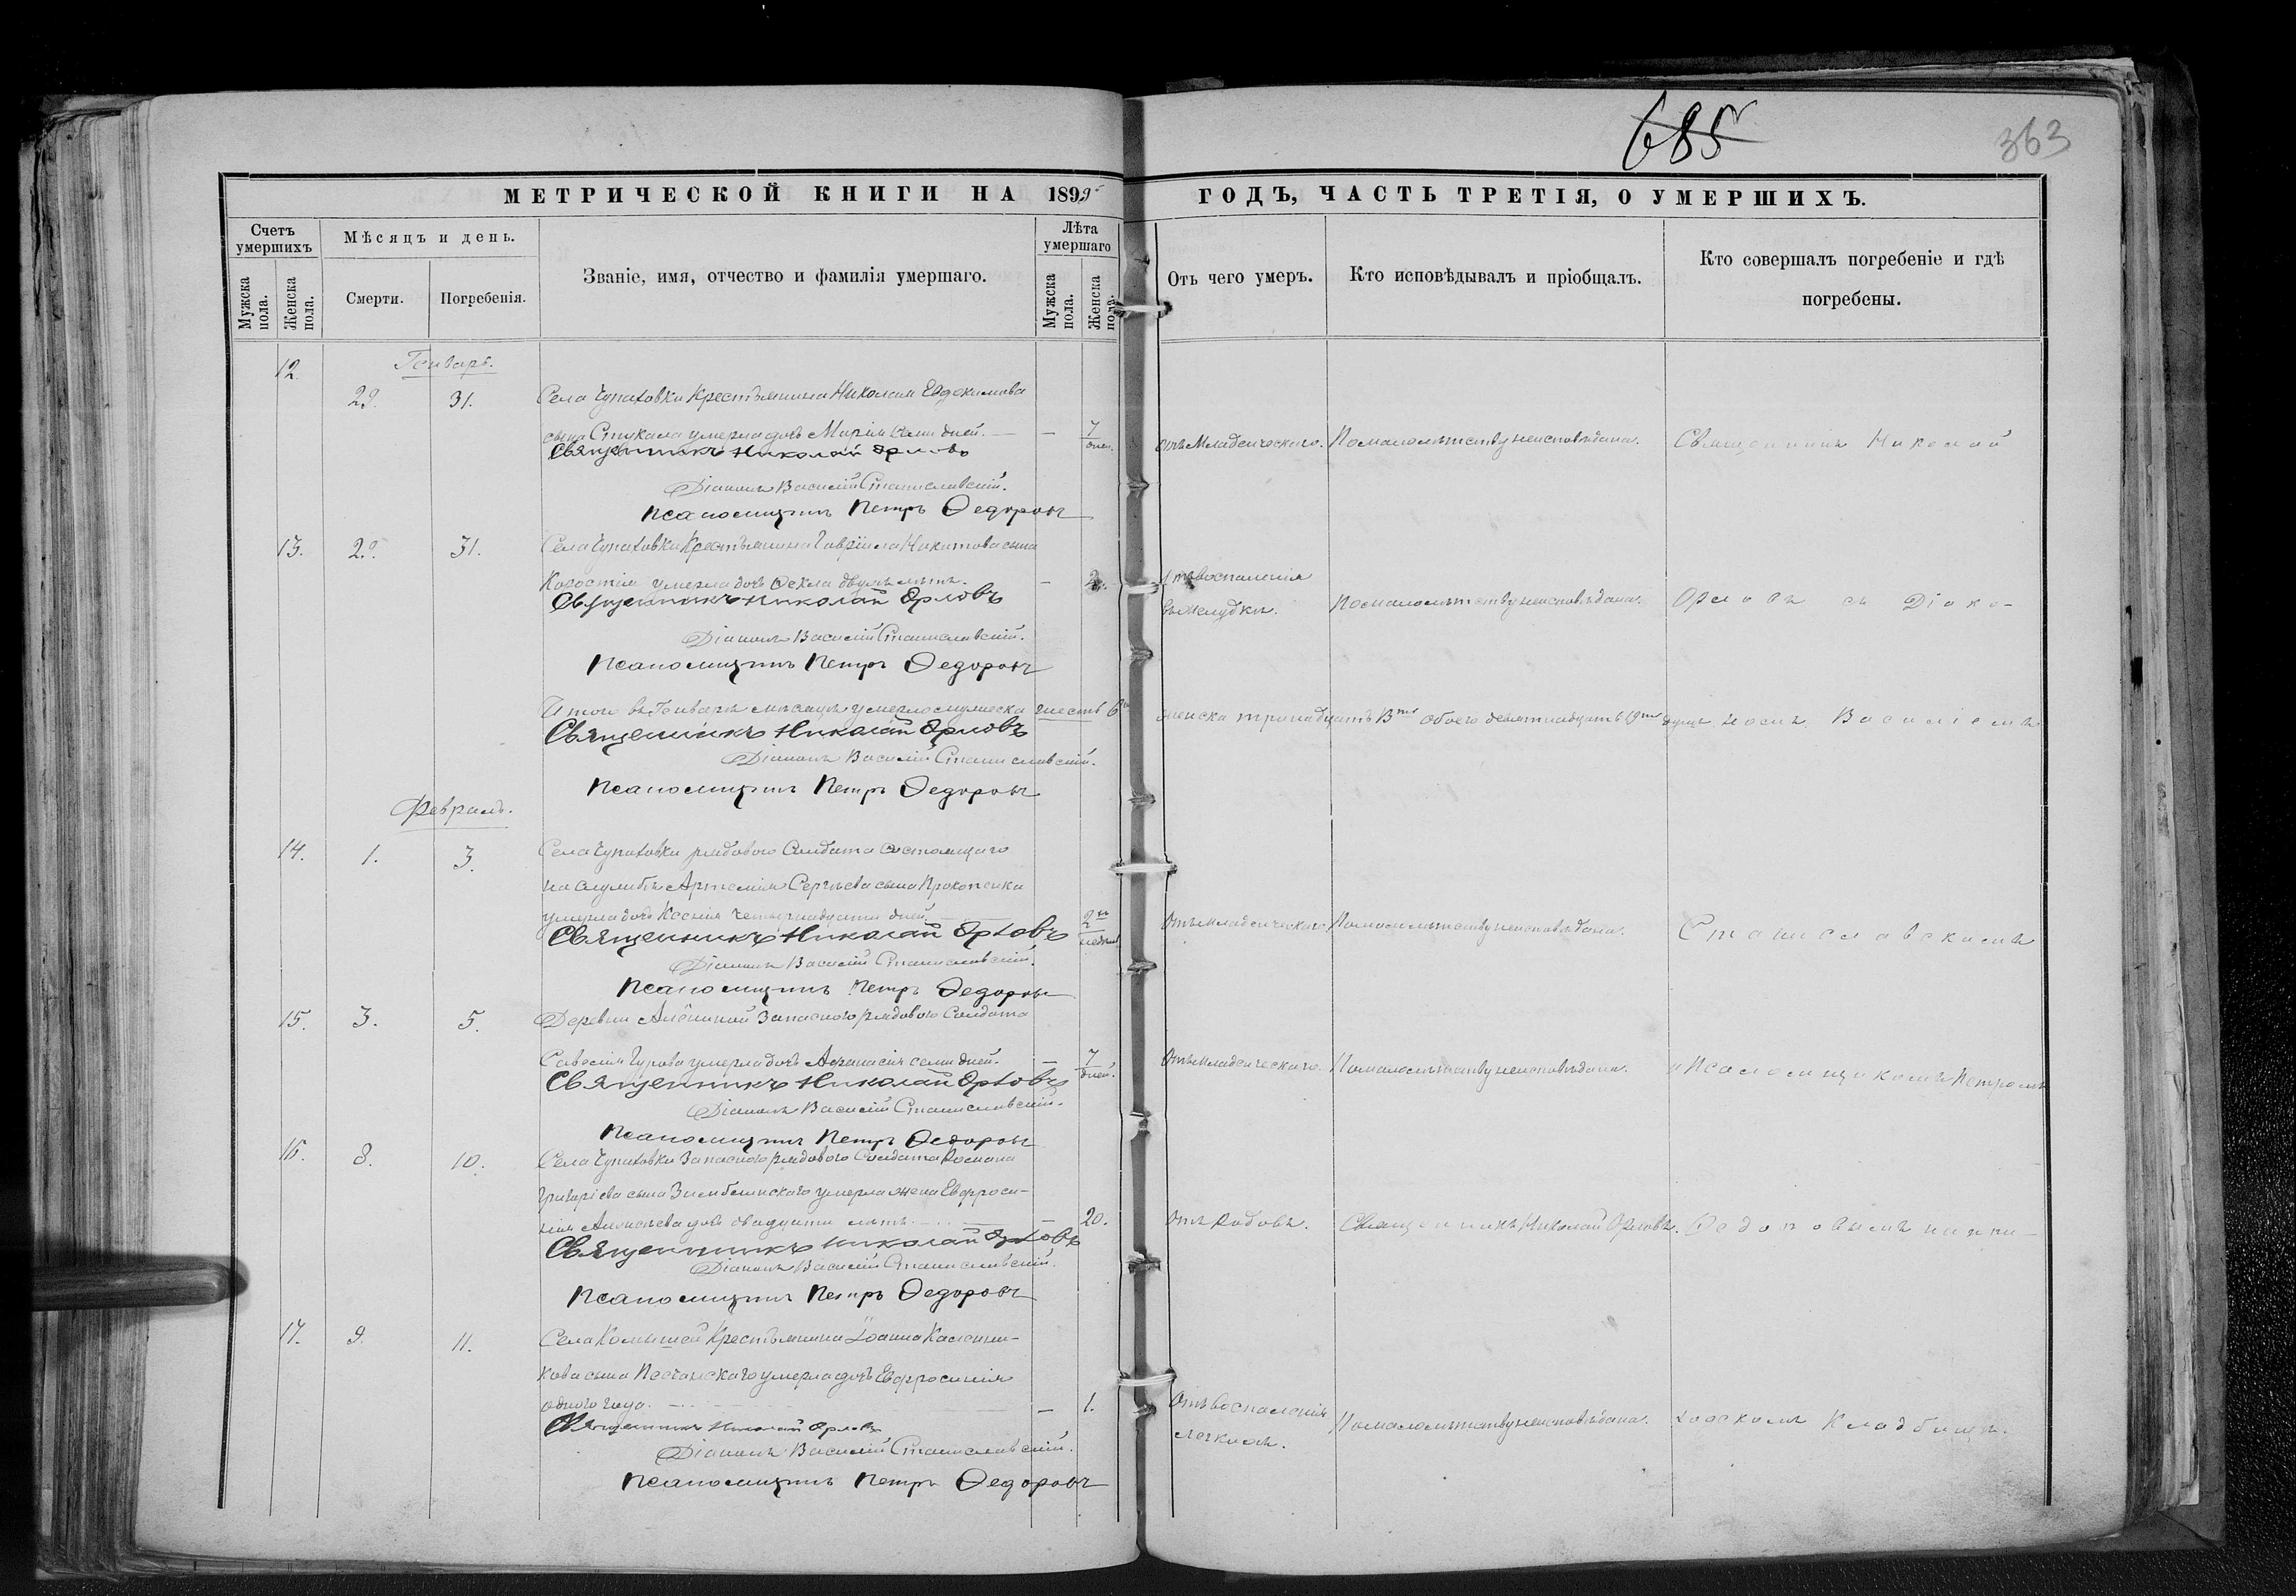 685
363
МЕТРИЧЕСКОЙ КНИГИ НА 1895 ГОДЪ, ЧАСТЬ ТРЕТІЯ, О УМЕРШИХЪ.
Счетъ умершихъ
Мужска пола.
Женска пола.
Мѣсяцъ и день.
Смерти.
Погребенія.
Званіе, имя, отчество и фамилія умершаго.
Лѣта умершаго
Мужска пола.
Женска пола.
Отъ чего умеръ.
Кто исповѣдывалъ и пріобщалъ.
Кто совершалъ погребеніе и гдѣ
погребены.
12. Генварь.
29. 31. Села Чупаховки Крестьянина Николая Евдокимова
сына Стукала умерла дочь Марія семи дней. — 7 дней. Отъ Младенческаго. По малолѣтству не исповѣдана. Священникъ Николай
Священникъ Николай Орловъ
Діаконъ Василій Станиславскій.
Псаломщикъ Петръ Ѳедоровъ
13. 29. 31. Села Чупаховки Крестьянина Гавріила Никитова сына
умерла дочь Ѳекла двухъ лѣтъ. — 2. Отъ воспаленія
Священникъ Николай Орловъ
желудка. По малолѣтству не исповѣдана. Орловъ съ Діако-
Діаконъ Василій Станиславскій.
Псаломщикъ Петръ Ѳедоровъ
Итого въ Генварѣ мѣсяцѣ умерло мужеска шесть 6 женска тринадцать 13 обоего девятнадцать 19 душъ. номъ Василіемъ
Священникъ Николай Орловъ
Діаконъ Василій Станиславскій.
Псаломщикъ Петръ Ѳедоровъ
Февраль.
14. 1. 3. Села Чупаховки рядового Солдата состоящаго
на службѣ Артемія Сергѣева сына Прокопенка
умерла дочь Ксенія четырнадцати дней. — 2 недѣль Отъ младенческаго. По малолѣтству не исповѣдана. Станиславскимъ
Священникъ Николай Орловъ
Діаконъ Василій Станиславскій.
Псаломщикъ Петръ Ѳедоровъ
15. 3. 5. Деревни Алёшиной Запаснаго рядового Солдата
Савелія Гурова умерла дочь Аѳанасія семи дней. — 7 дней. Отъ младенческаго. По малолѣтству не исповѣдана. и Псаломщикомъ Петромъ
Священникъ Николай Орловъ
Діаконъ Василій Станиславскій.
Псаломщикъ Петръ Ѳедоровъ
16. 8. 10. Села Чупаховки Запасного рядового Солдата Романа
Григоріева сына умерла жена Евфроси-
нія Алексѣева дочь двадцати лѣтъ. — 20. Отъ Родовъ. Священникъ Николай Орловъ. Ѳедоровымъ на при-
Священникъ Николай Орловъ
Діаконъ Василій Станиславскій.
Псаломщикъ Петръ Ѳедоровъ
17. 9. 11. Села Комышей Крестьянина Іоанна Каленни-
кова сына умерла дочь Евфросинія
одного года. — 1. Отъ воспаленія
легкихъ. По малолѣтству не исповѣдана. ходскомъ Кладбищѣ.
Священникъ Николай Орловъ
Діаконъ Василій Станиславскій.
Псаломщикъ Петръ Ѳедоровъ